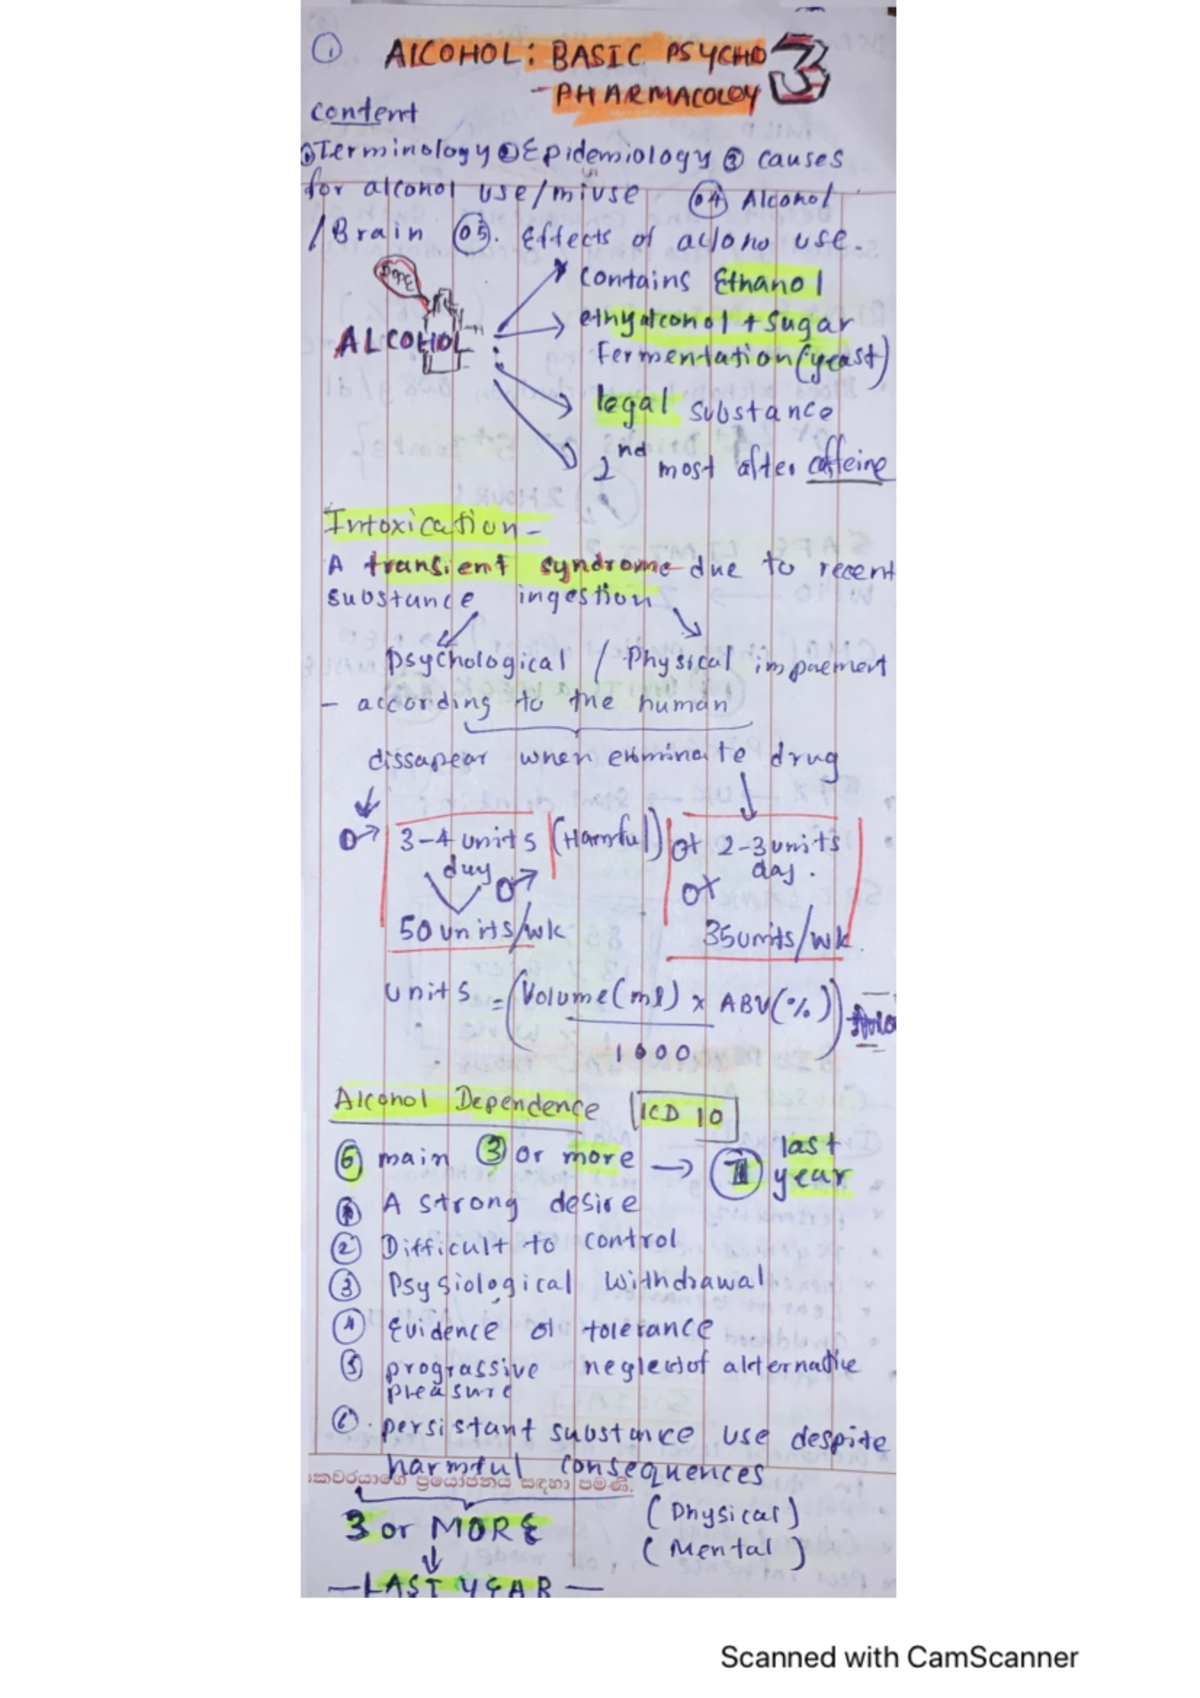 1
ALCOHOL: BASIC PSYCHO 3
- PHARMACOLOY
content
① Terminology ② Epidemiology ③ causes
for alconol use/miuse 04 Alcanol
/Brain 05. Effects of aclono use.
DOPE
contains Ethanol
ALCOHOL :
ethyalconol + sugar
Fermentation (yeast)
legal substance
2nd most after caffeine
Intoxication -
A transient syndrome due to recent
substance ingestion
psychological / Physical impaement
- according to the human
dissapear when eliminate drug
♂ 3-4 units (Harmful) ♀ 2-3 units
day ♂ day.
♀
50 units/wk 35 units/wk
units = (Volume (ml) x ABV (%))
1000
Alconol Dependence ICD 10
6 main 3 or more → 1 last
year
① A strong desire
② Difficult to control
③ Psysiological withdrawal
④ Evidence of tolerance
⑤ prograssive neglect of alternative
pleasure
⑥. persistant substance use despite
harmful consequences
ප්‍රයෝජනය සඳහා පමණි.
3 or MORE (Physical)
(Mental)
— LAST YEAR —
Scanned with CamScanner